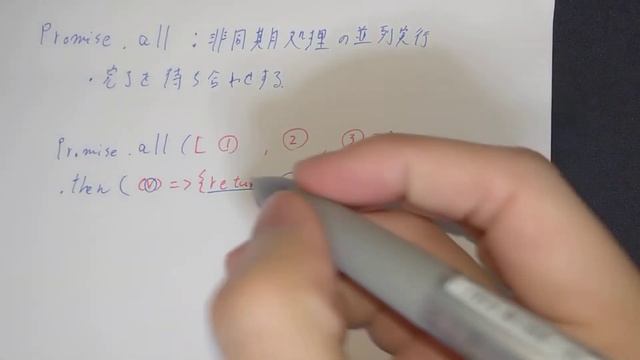 Promise.all : 非同期処理の並列実行
・完了を待ち合わせする
Promise.all ([ ① , ② , ③
.then ( (v) => { retur